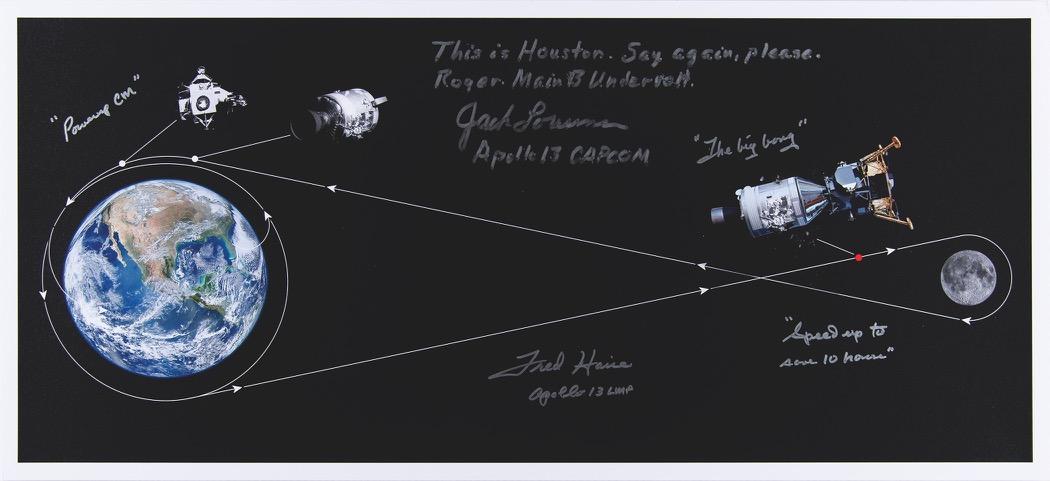 This is Houston. Say again, please.
Roger. Main B Undervolt.
Jack Lousma
Apollo 13 CAPCOM
"Powering CM"
"The big bang"
"Speed up to
save 10 hours"
Fred Haise
Apollo 13 LMP